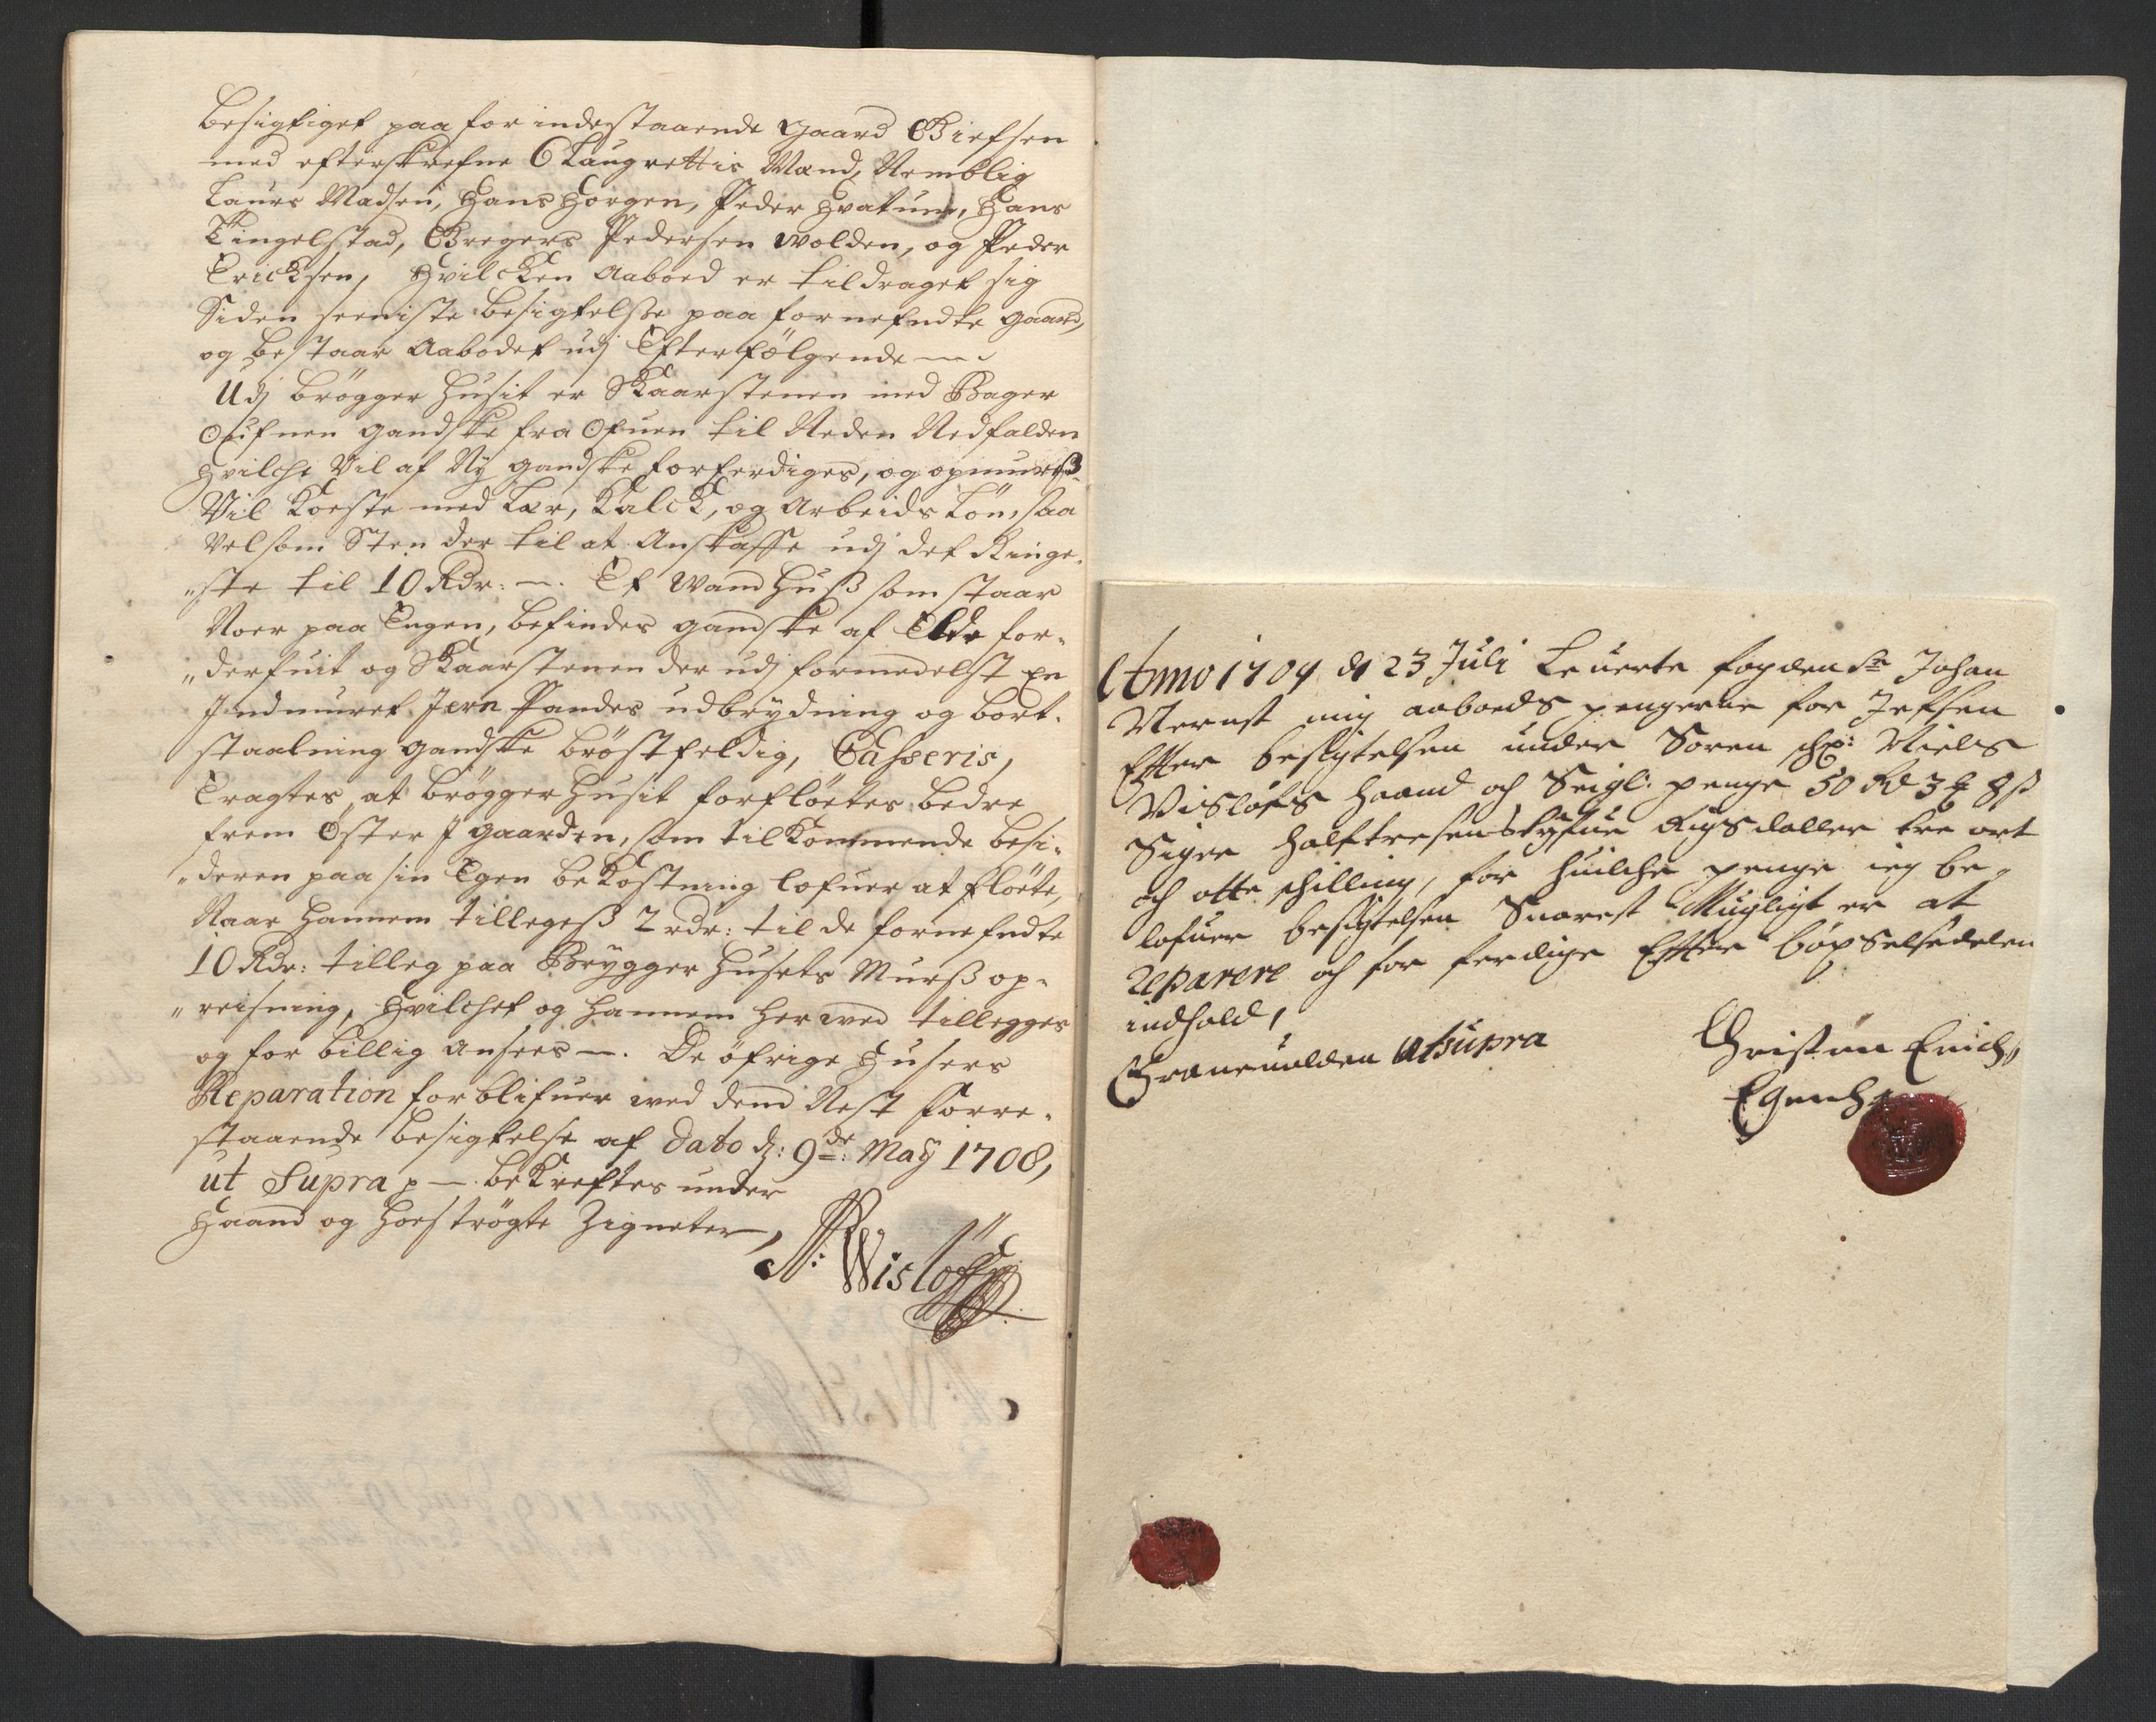 Besigtiget paa for indestaaende Gaard Giefsen
med efterskrefne 6 Laugrettis Mænd, Nemblig
Laurs Madsen, Hans Horgen, Peder Hvatum, Hans
Tingelstad, Gregers Pedersen Wolden, og Peder
Ericksen, Hvilcken Aaboed er tildraget sig
Siden seeniste besigtelse paa fornefndte gaard,
og bestaar Aabodet udj Efterfølgende
Udj brøgger Husit er Skaarstenen med Bager
Oufnen gandske fra Ofuen til Neden Nedfalden
Hvilche Vil af Ny gandske forferdiges, og opmuris
Vil Koeste med Leer, Kalck, og Arbeids Løn, saa
Vel som Steen der til at Anskaffe udj det Ringe-
ste til 10 Rdr: Et Wand Huus som staar
Noer paa Engen, befindes gandske af Elde for-
derfuit og Skaarstenen der udj formedelst En
Indmuret Jern Pandes udbrydning og bort-
staalning gandske brøstfeldig, Casseris,
Eragtes at brøgger Husit forfløetes bedre
frem Øster I gaarden, som tilkommende besi-
deren paa sin Egen bekostning lofuer at fløete,
Naar hannem tillegeß 2 rdr: til de fornefndte
10 Rdr: tilleg paa Brygger Husets Murß op-
reisning, Hvilchet og hannem her wed tillegges
og for billig ansees. De øfrige Husers
Reparation forblifuer wed dend Nest forre-
staaende besigtelse af Dato d: 9de: May 1708,
ut Supra p bekreftes under
Haand og hoestrøgte Zigneter,
N: Wisløff
Anno 1709 d 23 Juli Leuerte fogden Sr Johan
Mernst mig aaboeds pengerne for Jefsen
Efter besigtelsen under Soren Niels
Visløfs haand och Seigl. penge 50 Rd 3 8 ß
Siger halftresenstyfue Rigsdaller tre ort
och otte schilling, for huilche penge ieg be-
lofuer besigtelsen Snarest Mugligt er at
reparere och for ferdige Efter böxselsedelen
indhold,
Graneuolden Ut supra
Christen Erichs
Egenh